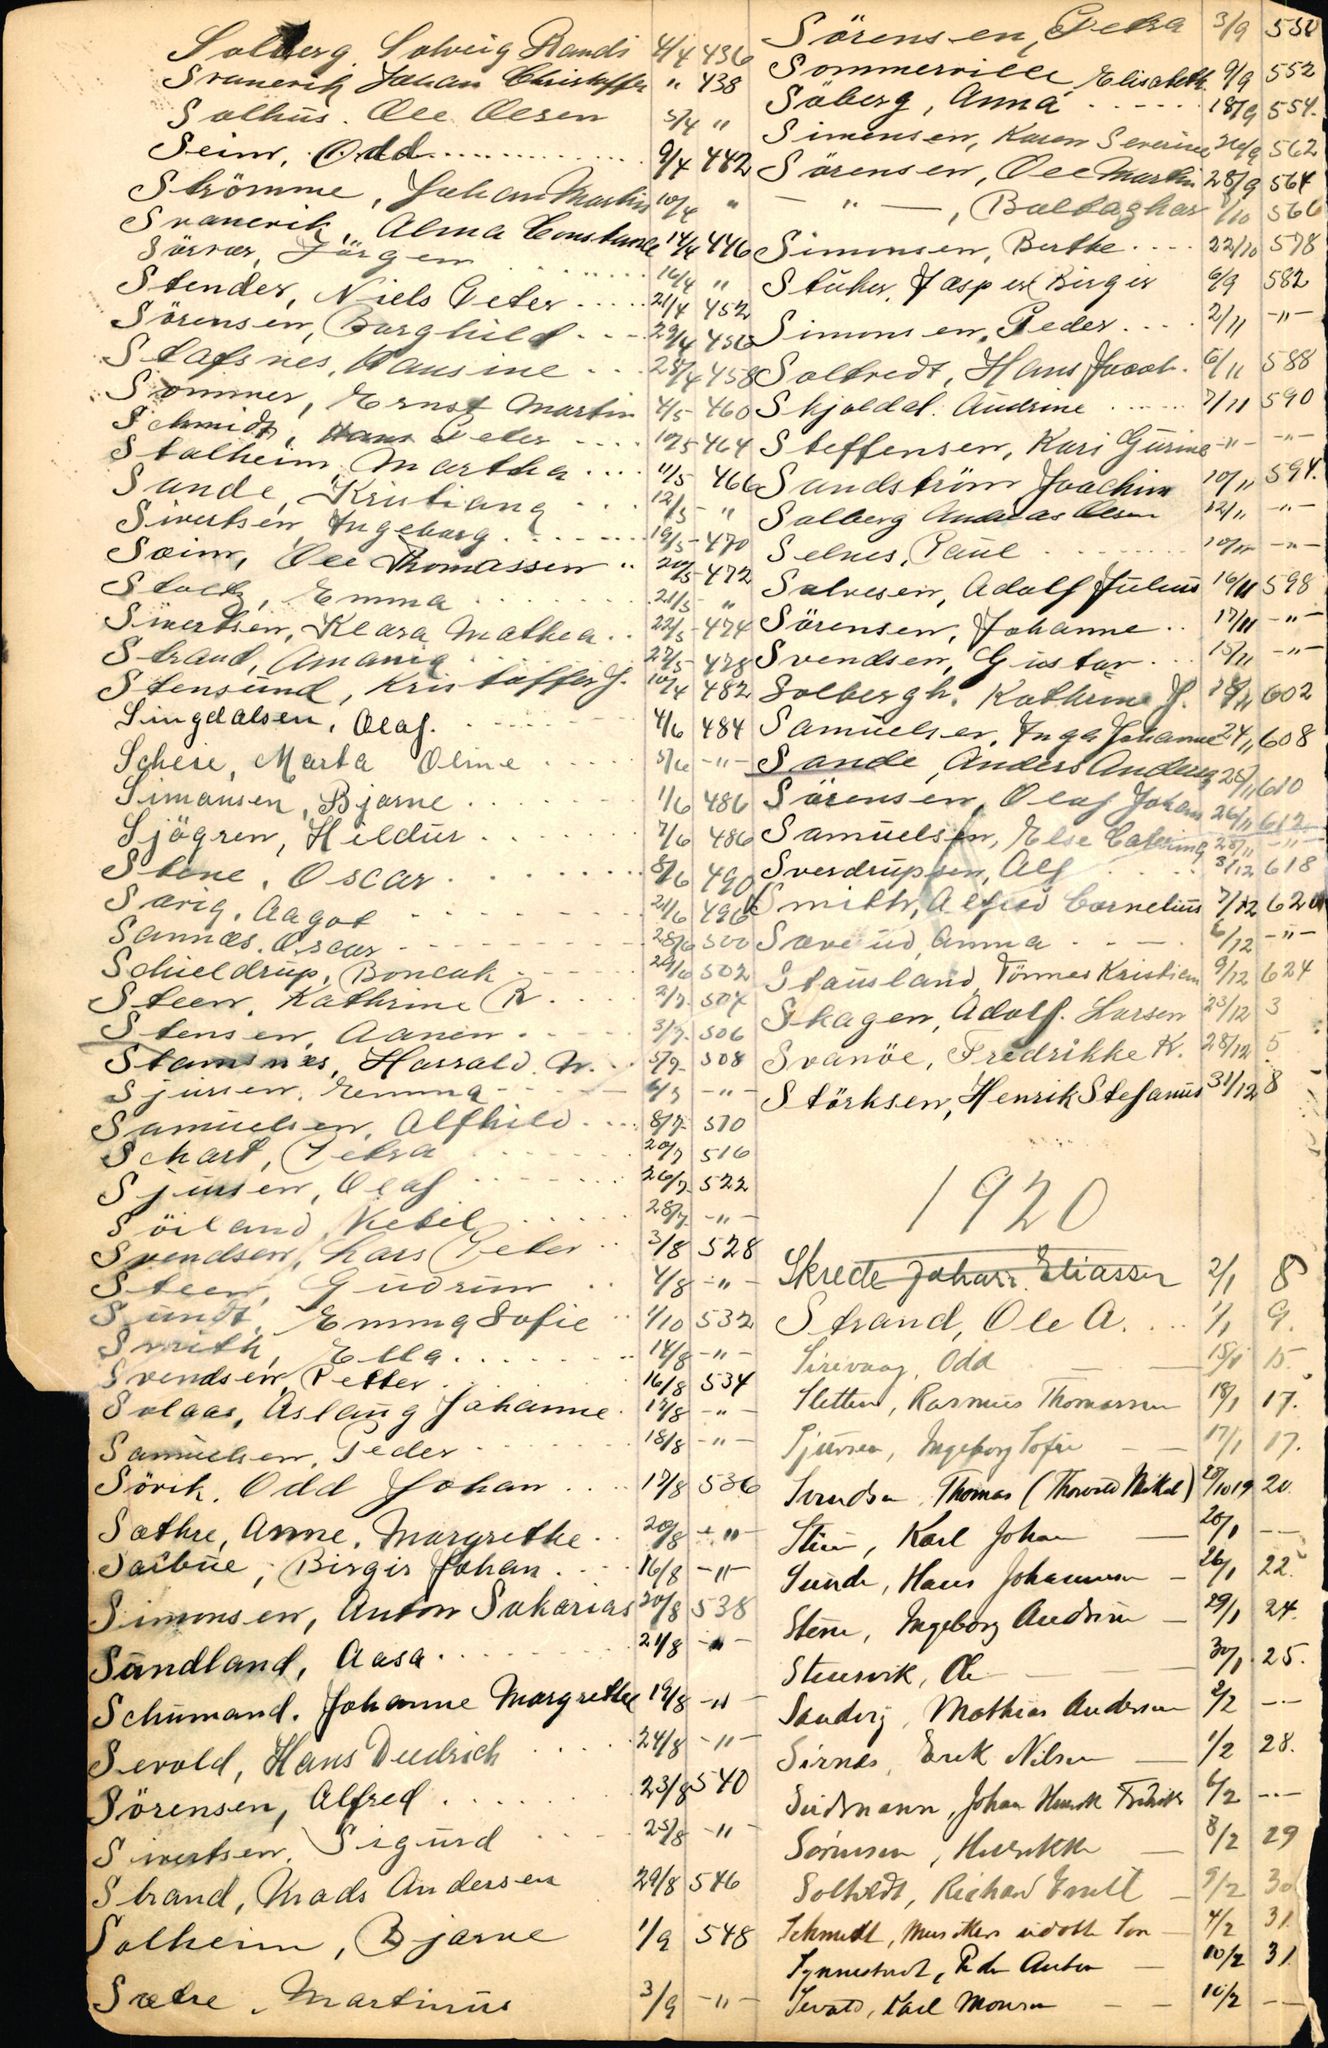 Solberg. Solveig Randi 4/4 436
Svanevik Johan Christoffer " 438
Solhus. Ole Olsen 5/4 "
Seim, Odd 9/4 442
Strömme, Johan Martin 10/4 "
Svanevik, Alma Constance 14/4 446
Sörvær, Jörgen 16/4 "
Stender, Niels Peter 21/4 452
Sörensen, Borghild 29/4 456
Stafsnes, Hansine 28/4 458
Sommer, Ernst Martin 4/5 460
Schmidt, Hans Peder 10/5 464
Stalheim Martha 11/5 466
Sande, Kristiana 12/5 "
Sivertsen Ingeborg 19/5 470
Soeim, Ole Thomassen " 20/5 472
Stoltz, Emma 21/5 "
Sivertsen, Klara Mathea 22/5 474
Strand, Amania 27/5 478
Stensund, Kristoffer J. 10/4 482
Singdalsen, Olaf. 4/6 484
Scheie, Marta Oline 5/6 -"-
Simonsen, Bjarne 1/6 486
Sjögren, Hildur 7/6 486
Stene, Oscar 8/6 490
Sørig, Aagot 21/6 496
Sannæs. Oscar 28/6 500
Schieldrup, 24/6 502
Steen, Kathrine R. 2/7 504
Stensen, Aanen 3/7 506
Stamsnes, Harrald N. 5/7 508
Sjursen, Emma 6/7 -"-
Samuelsen, Alfhild 8/7 510
Schart, Petra 20/7 516
Sjursen, Olaf 26/7 522
Söiland, Ketel 28/7 -"-
Svendsen, Lars Peter 3/8 528
Steen, Gudrun 4/8 -"-
Sundt, Emma Sofie 1/10 532
Smith, Ella 14/8 -"-
Svendsen, Petter 16/8 534
Solaas, Aslaug Johanne 17/8 -"-
Samuelsen, Peder 18/8 -"-
Sörik. Odd Johan 17/8 536
Sæthre, Anne. Margrethe 20/8 -"-
Saibue, Birgir Johan 16/8 -"-
Simonsen, Anton Sakarias 20/8 538
Sundland, Aasa 21/8 -"-
Schumand. Johanne Margrethe 19/8 -"-
Sevold, Hans Diedrich 24/8 -"-
Sörensen, Alfred 23/8 540
Sivertsen, Sigurd 25/8 -"-
Strand, Mads Andersen 29/8 546
Solheim, Bjarne 1/9 548
Sætre, Martinus 3/9 -"-
Sörensen, Petra 3/9 550
Sommerville, Elisabeth 9/9 552
Söberg, Anna 18/9 554.
Simonsen, Karen Severine 26/9 562
Sörensen, Ole Martin 28/9 564
— " —, Baltazar /10 566
Simonsen, Berthe 22/10 578
Stuhr, Jasper Birger 6/9 582
Simonsen, Peder 2/11 -"-
Soltvedt, Hans Jacob 6/11 588
Skjoldal. Andrine 7/11 590
Steffensen, Kari Gurine -"- -"-
Sandström Joachim 10/11 594.
Solberg Andreas Olsen 12/11 -"-
Selnes, Paul 10/11 -"-
Salvesen, Adolf Julius 16/11 598
Sörensen, Johanne 17/11 -"-
Svendsen, Gustav 15/11 -"-
Solbergh. Kathrine J. 18/11 602
Samuelsen, Inga Johanne 24/11 608
Sande, Anders Andreas 25/11 610
Sörensen, Olaf Johan 26/11 612
Samuelsen, Else Catering 28/11 -"-
Sverdrupsen, Alf 3/12 618
Smith, Alfred Cornelius 7/12 620
Sæveid, Anna 6/12 -"-
Stausland, Tönnes Kristian 9/12 624
Skagen, Adolf. Larsen 23/12 3
Svanöe, Fredrikke K. 28/12 5
Störksen, Henrik Stefanus 31/12 8
1920
Skrede Johan Eliassen 2/1 8
Strand, Ole A. 1/1 9.
Sirevaag, Odd 15/1 15.
Sletten, Rasmus Thomassen 18/1 17.
Sjursen, Ingeborg Sofie 17/1 17.
Svendsen Thomas (Thorvald Nikol) 28/10 19 20.
Stein, Karl Johan 20/1 —
Sunde, Hans Johannesen 26/1 22.
Stene, Ingeborg Andrine 29/1 24.
Stensvik, Ole 30/1 25.
Sandvig, Mathias Andersen 2/2 —
Sirnæs, Erik Nilsen 1/2 28.
Suidmann, Johan Henrik Fredrik 6/2 —
Sörensen, Henrikke 8/2 29
Soltvedt, Richard Emil 9/2 30
Schmidt, udøbt Søn 4/2 31
Synnestvedt, Peder Anton 10/2 31
Sevold, Karl Monsen 10/2 —